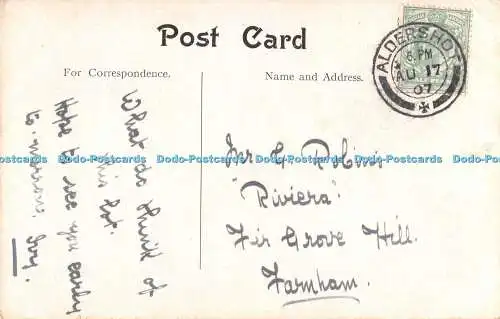 Post Card
For Correspondence.
Name and Address.
ALDERSHOT
6. PM
AU 17
07
What do think of
this lot.
Hope to see you early
to-morrow.
G. Robins
"Riviera"
Fir Grove Hill.
Farnham.
Dodo-Postcards Dodo-Postcards Dodo-Postcards Dodo-Postcards Dodo-Postcards